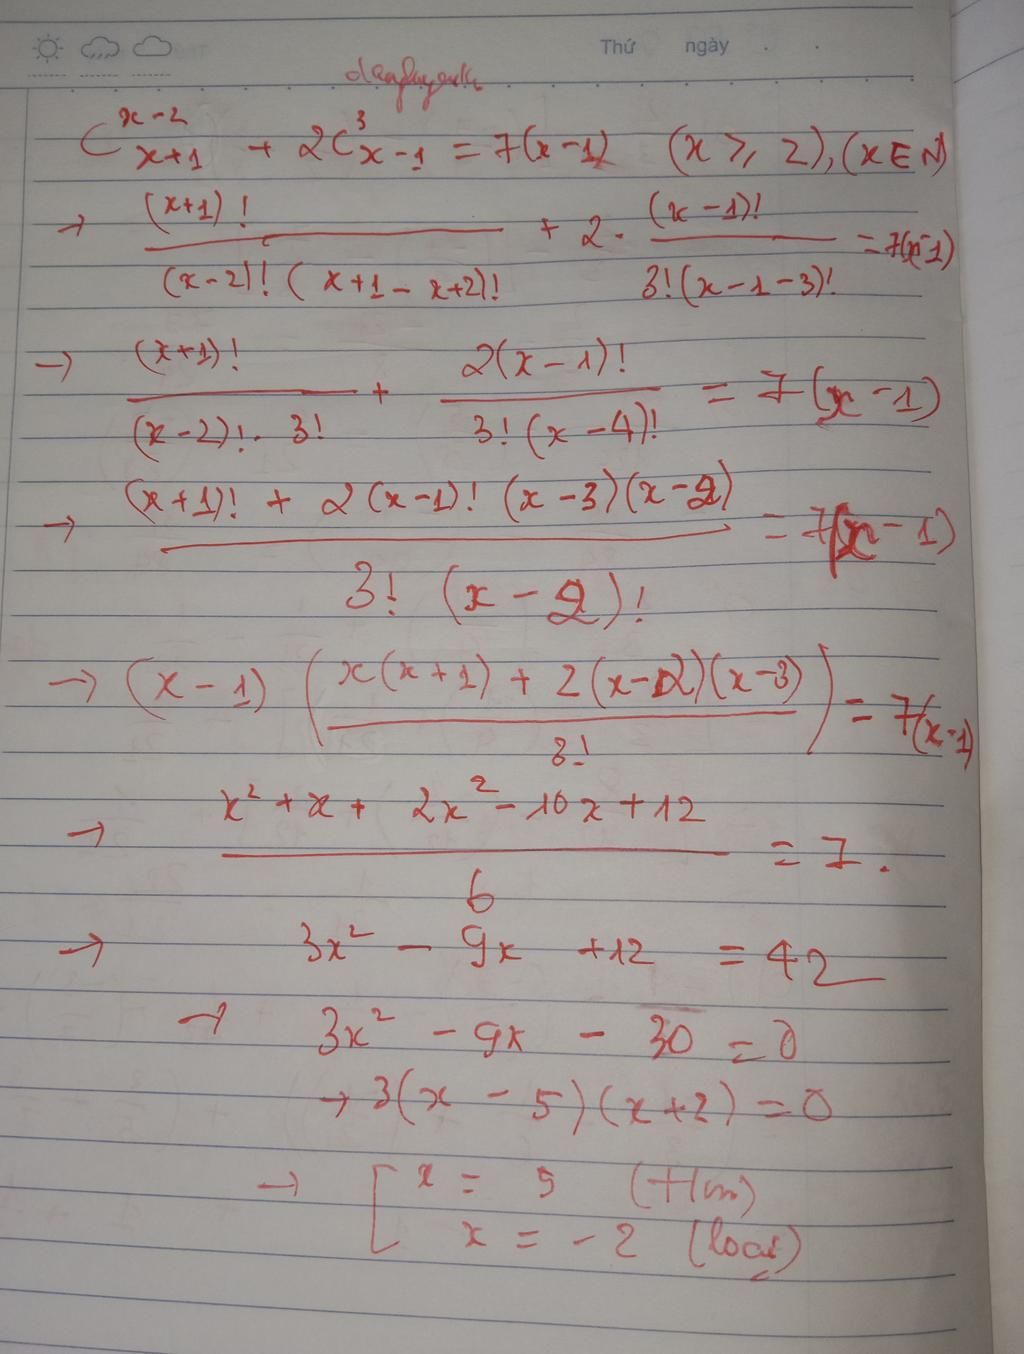 Thứ ngày
C^{x-2}_{x+1} + 2C^{3}_{x-1} = 7(x-1) (x ⩾ 2), (x ∈ N)
→ (x+1)! / (x-2)! (x+1-x+2)! + 2. (x-1)! / 3!(x-1-3)! = 7(x-1)
→ (x+1)! / (x-2)!. 3! + 2(x-1)! / 3!(x-4)! = 7(x-1)
→ (x+1)! + 2(x-1)! (x-3)(x-2) / 3! (x-2)! = 7(x-1)
→ (x-1) ( x(x+1) + 2(x-2)(x-3) / 3! ) = 7(x-1)
→ x² + x + 2x² - 10x + 12 / 6 = 7.
→ 3x² - 9x + 12 = 42
→ 3x² - 9x - 30 = 0
→ 3(x - 5)(x+2) = 0
→ [ x = 5 (t/m)
x = -2 (loại)